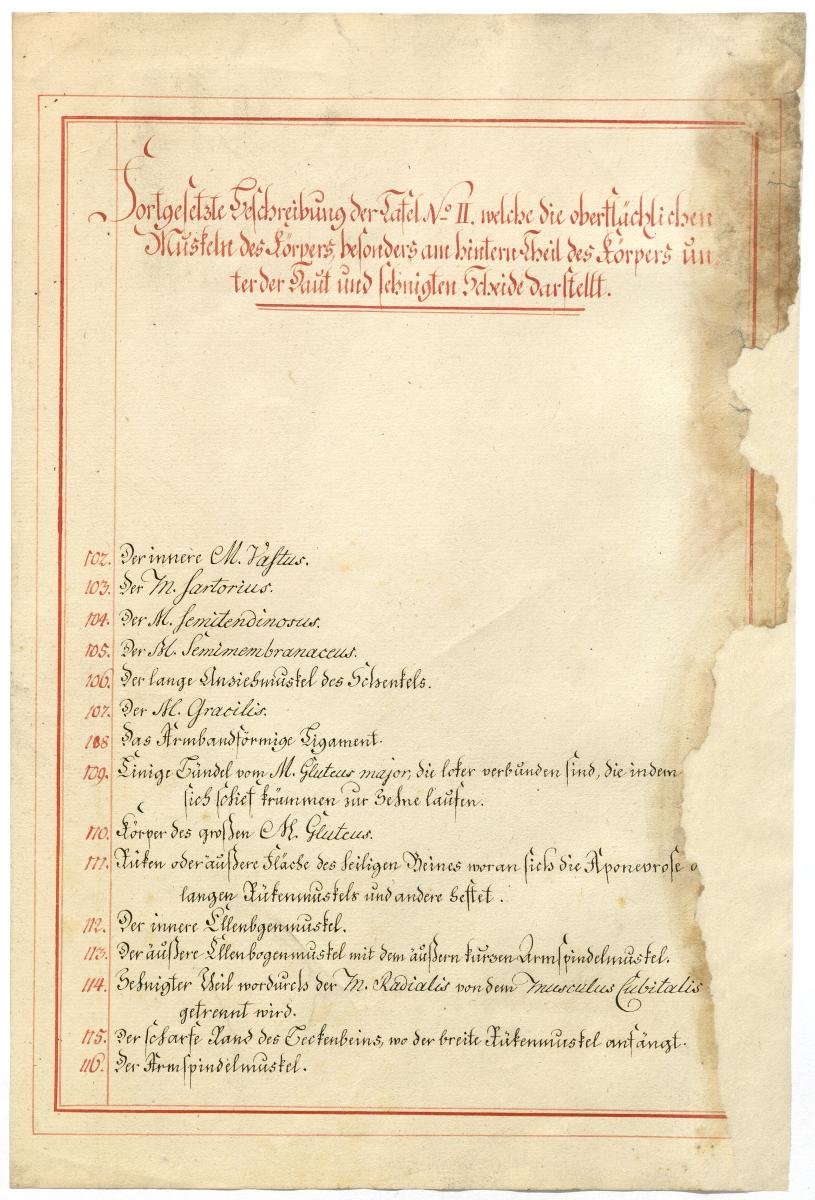 Fortgesetzte Beschreibung der Tafel No II. welche die oberflächlichen
Muskeln des Körpers, besonders am hintern Theil des Körpers un-
ter der Haut und sehnigten Scheide darstellt.
102. Der innere M. Vastus.
103. Der M. Sartorius.
104. Der M. Semitendinosus.
105. Der M. Semimembranaceus.
106. Der lange Anziehmuskel des Schenkels.
107. Der M. Gracilis.
108 Das Armbandförmige Ligament.
109. Einige Bündel vom M. Gluteus major, die loker verbunden sind, die indem
sich schief krümmen zur Sehne laufen.
110. Körper des großen M. Gluteus.
111. Rüken oder äußere Fläche des heiligen Beines woran sich die Aponevrose
langen Rükenmuskels und andere heftet.
112. Der innere Ellenbgenmuskel.
113. Der äußere Ellenbogenmuskel mit dem äußern kurzen Armspindelmuskel.
114. Sehnigter Theil wordurch der M. Radialis von dem musculus Cubitalis
getrennt wird.
115. Der scharfe Rand des Beckenbeins, wo der breite Rükenmuskel anfängt.
116. Der Armspindelmuskel.